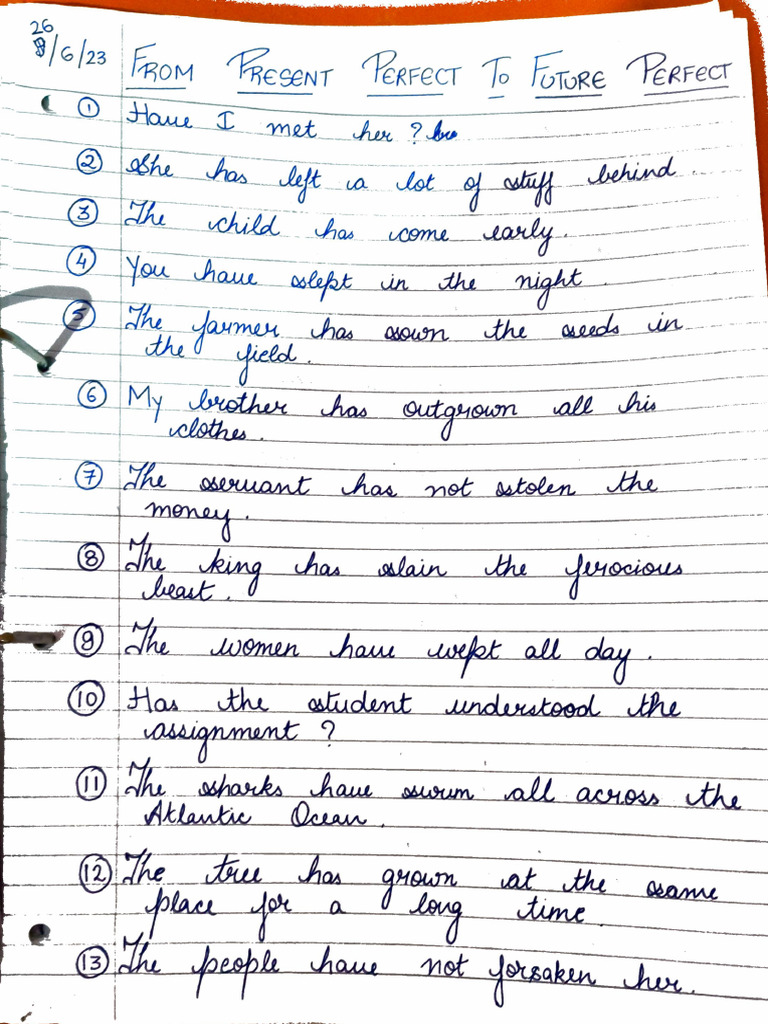 26
/6/23
FROM PRESENT PERFECT TO FUTURE PERFECT
① Have I met her ?
② She has left a lot of stuff behind.
③ The child has come early.
④ You have slept in the night.
⑤ The farmer has sown the seeds in
the field.
⑥ My brother has outgrown all his
clothes.
⑦ The servant has not stolen the
money.
⑧ The king has slain the ferocious
beast.
⑨ The women have wept all day.
⑩ Has the student understood the
assignment ?
⑪ The sharks have swum all across the
Atlantic Ocean.
⑫ The tree has grown at the same
place for a long time.
⑬ The people have not forsaken her.